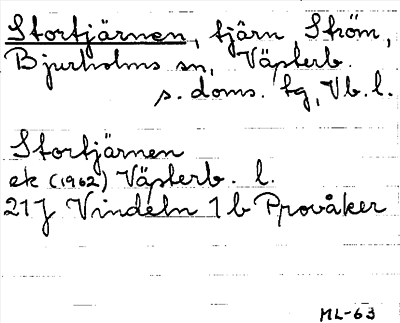 Stortjärnen, tjärn Ström,
Bjurholms sn, Västerb.
s. doms. tg, Vb. l.
Stortjärnen
ek (1962) Västerb. l.
21J Vindeln 1b Provåker
ML-63